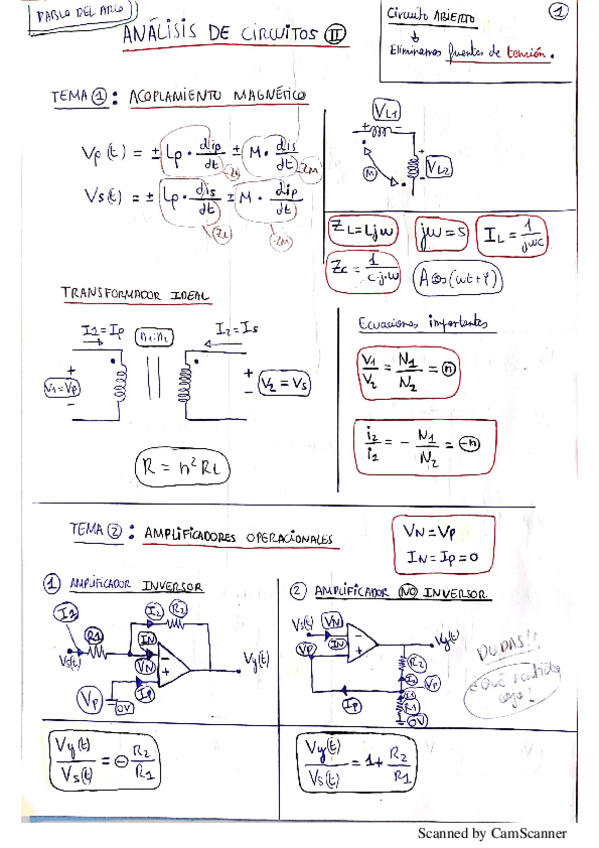 PABLO DEL ARCO
ANÁLISIS DE CIRCUITOS II
Circuito ABIERTO
↓
Eliminamos fuentes de tensión.
1
TEMA 1: ACOPLAMIENTO MAGNÉTICO
Vp(t) = ± Lp · dip/dt ± M · dis/dt
ZL
ZM
Vs(t) = ± Lp · dis/dt ± M · dip/dt
ZL
ZM
VL1
+ -
M
+
VL2
-
ZL = Ljw
jw = s
IL = 1/jwc
Zc = 1/c·j·w
A cos(wt+φ)
TRANSFORMADOR IDEAL
I1 = Ip
n1:n2
I2 = Is
+
V1 = Vp
-
+
V2 = Vs
-
R = n²RL
Ecuaciones importantes
V1/V2 = N1/N2 = n
i2/i1 = - N1/N2 = -n
TEMA 2: AMPLIFICADORES OPERACIONALES
VN = Vp
IN = Ip = 0
1 AMPLIFICADOR INVERSOR
I1
R1
I2
R2
IN
Vs(t)
VN
- +
Vy(t)
Ip
Vp
0V
Vy(t)/Vs(t) = - R2/R1
2 AMPLIFICADOR NO INVERSOR
Vs(t)
VN
IN
Vp
- +
Vy(t)
R2
Vp
Ip
R1
0V
DUDAS!!
¿Qué sentido cojo?
Vy(t)/Vs(t) = 1 + R2/R1
Scanned by CamScanner